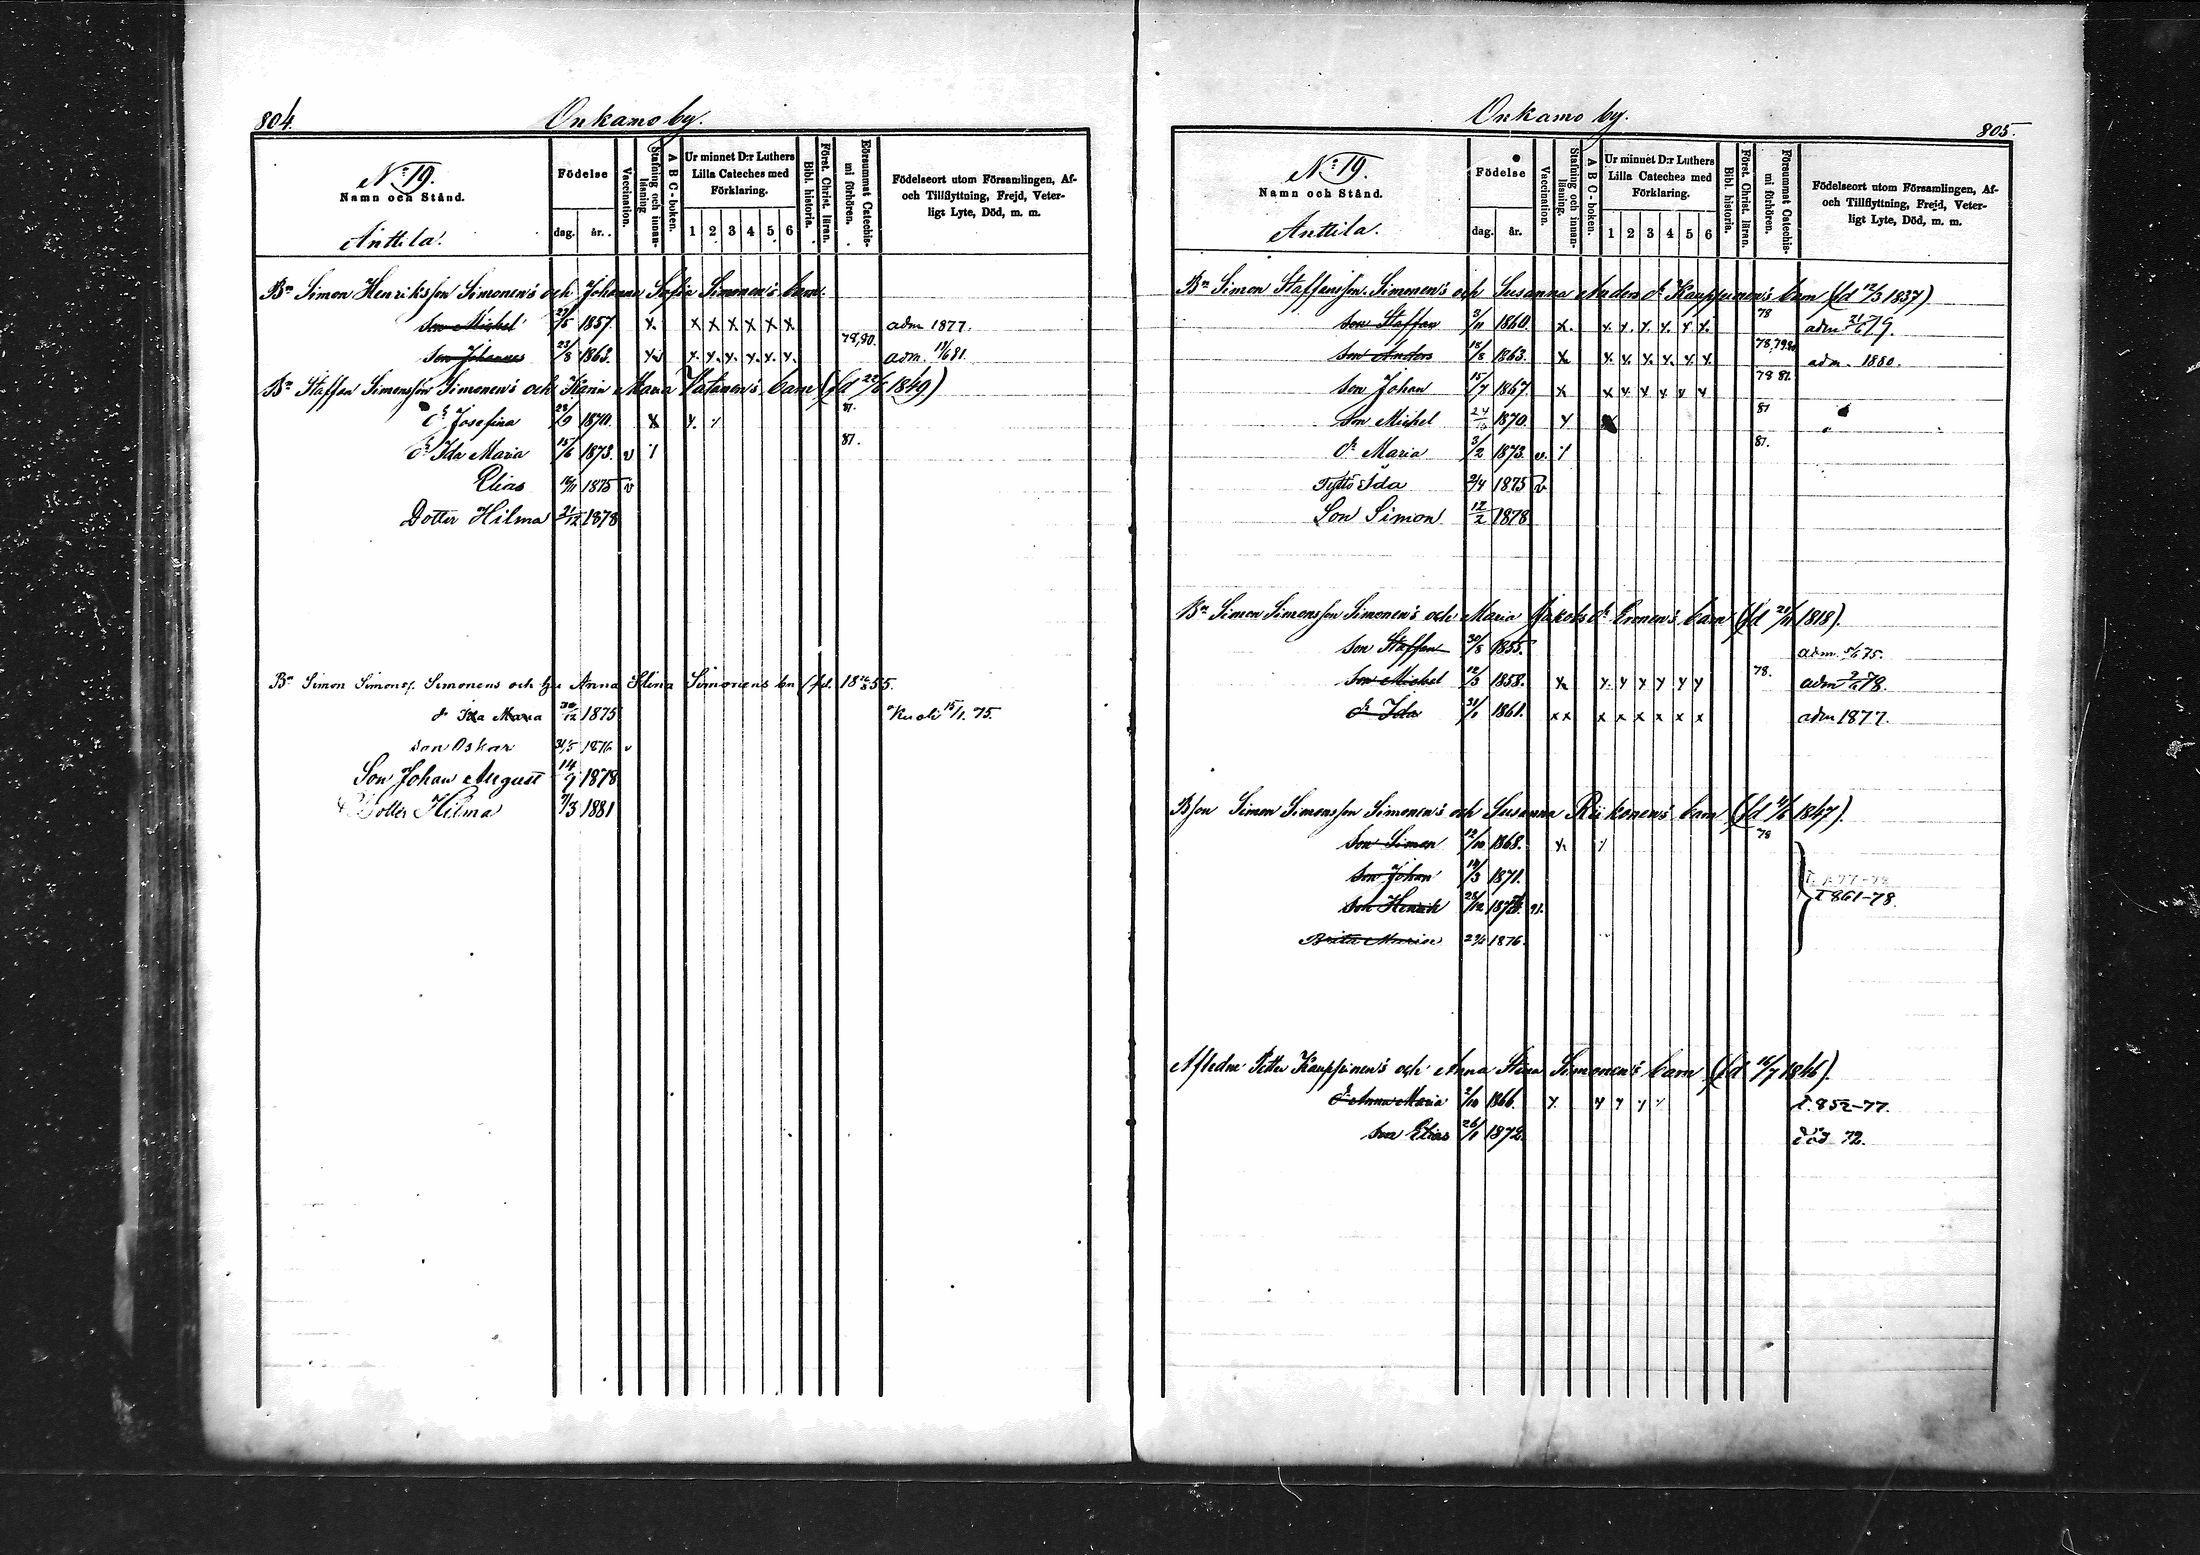 804.
Onkamo by.
No 19.
Namn och Stånd.
Anttila.
Födelse
dag. år.
Vaccination.
Stafning och innan-läsning
A B C-boken.
Ur minnet D:r Luthers
Lilla Cateches med
Förklaring.
1 2 3 4 5 6
Bibl. historia.
Först. Christ. läran.
Försummat Catechis-mi förhören.
Födelseort utom Församlingen, Af-
och Tillflyttning, Frejd, Veter-
ligt Lyte, Död, m. m.
Bn Simon Henriksson Simonen's och Johanna Sofia Simonen's barn.
son Michel 27/5 1857. x x x x x x x adm 1877.
son Johannes 23/8 1863. x x. x. x. x. x. x. 79,80. adm. 11/6 81.
Bn Staffan Simonsson Simonen's och Karin Maria Vatanen's barn (fd 1849)
dr Josefina 1870. x x. 81.
dr Ida Maria 15/6 1873. v 81.
Elias 1875 v
Dotter Hilma 21/12 1878
Bn Simon Simons. Simonens och hu Anna Stina Simonens bn (fd. 1855.
dr Ida Maria 30/12 1875 Kuoli 15/1. 75.
son Oskar 31/5 1876 v
Son Johan August 14/9 1878
Dotter Hilma 7/3 1881
Onkamo by.
805.
No 19.
Namn och Stånd.
Anttila.
Födelse
dag. år.
Vaccination.
Stafning och innan-läsning.
A B C-boken.
Ur minnet D:r Luthers
Lilla Cateches med
Förklaring.
1 2 3 4 5 6
Bibl. historia.
Först. Christ. läran.
Försummat Catechis-mi förhören.
Födelseort utom Församlingen, Af-
och Tillflyttning, Frejd, Veter-
ligt Lyte, Död, m. m.
Bn Simon Staffansson Simonen's och Susanna Anders dr Kauppinen's barn (fd 12/3 1837)
son Staffan 3/11 1860. x. x. x. x. x. x. x. 78 adm 21/6 79.
son Anders 18/8 1863. x x x x x x x 78,79,80 adm. 1880.
son Johan 15/7 1867. x x x x x x x 78 81.
son Michel 24/10 1870. x 81
dr Maria 3/2 1873. v. 81.
Tyttö Ida 2/4 1875 v
Son Simon 12/2 1878
Bn Simon Simonsson Simonen's och Maria Jakobs dr Eronen's barn (fd 21/11 1818).
son Staffan 30/8 1855. adm. 5/6 75.
son Michel 12/3 1858. x x x x x x x 78. adm 78.
dr Ida 31/1 1861. x x x x x x x x adm 1877.
Bson Simon Simonsson Simonen's och Susanna Riikonen's barn (fd 1/6 1847).
son Simon 12/10 1868. x 78
son Johan 19/3 1871.
T 861-78.
son Henrik 28/12 1874. v.
Brita Maria 1876.
Aflidne Petter Kauppinen's och Anna Stina Simonen's barn (fd 16/7 1846).
dr Anna Maria 2/10 1866. x x x x x T. 852-77.
son Elias 26/1 1872. död 72.